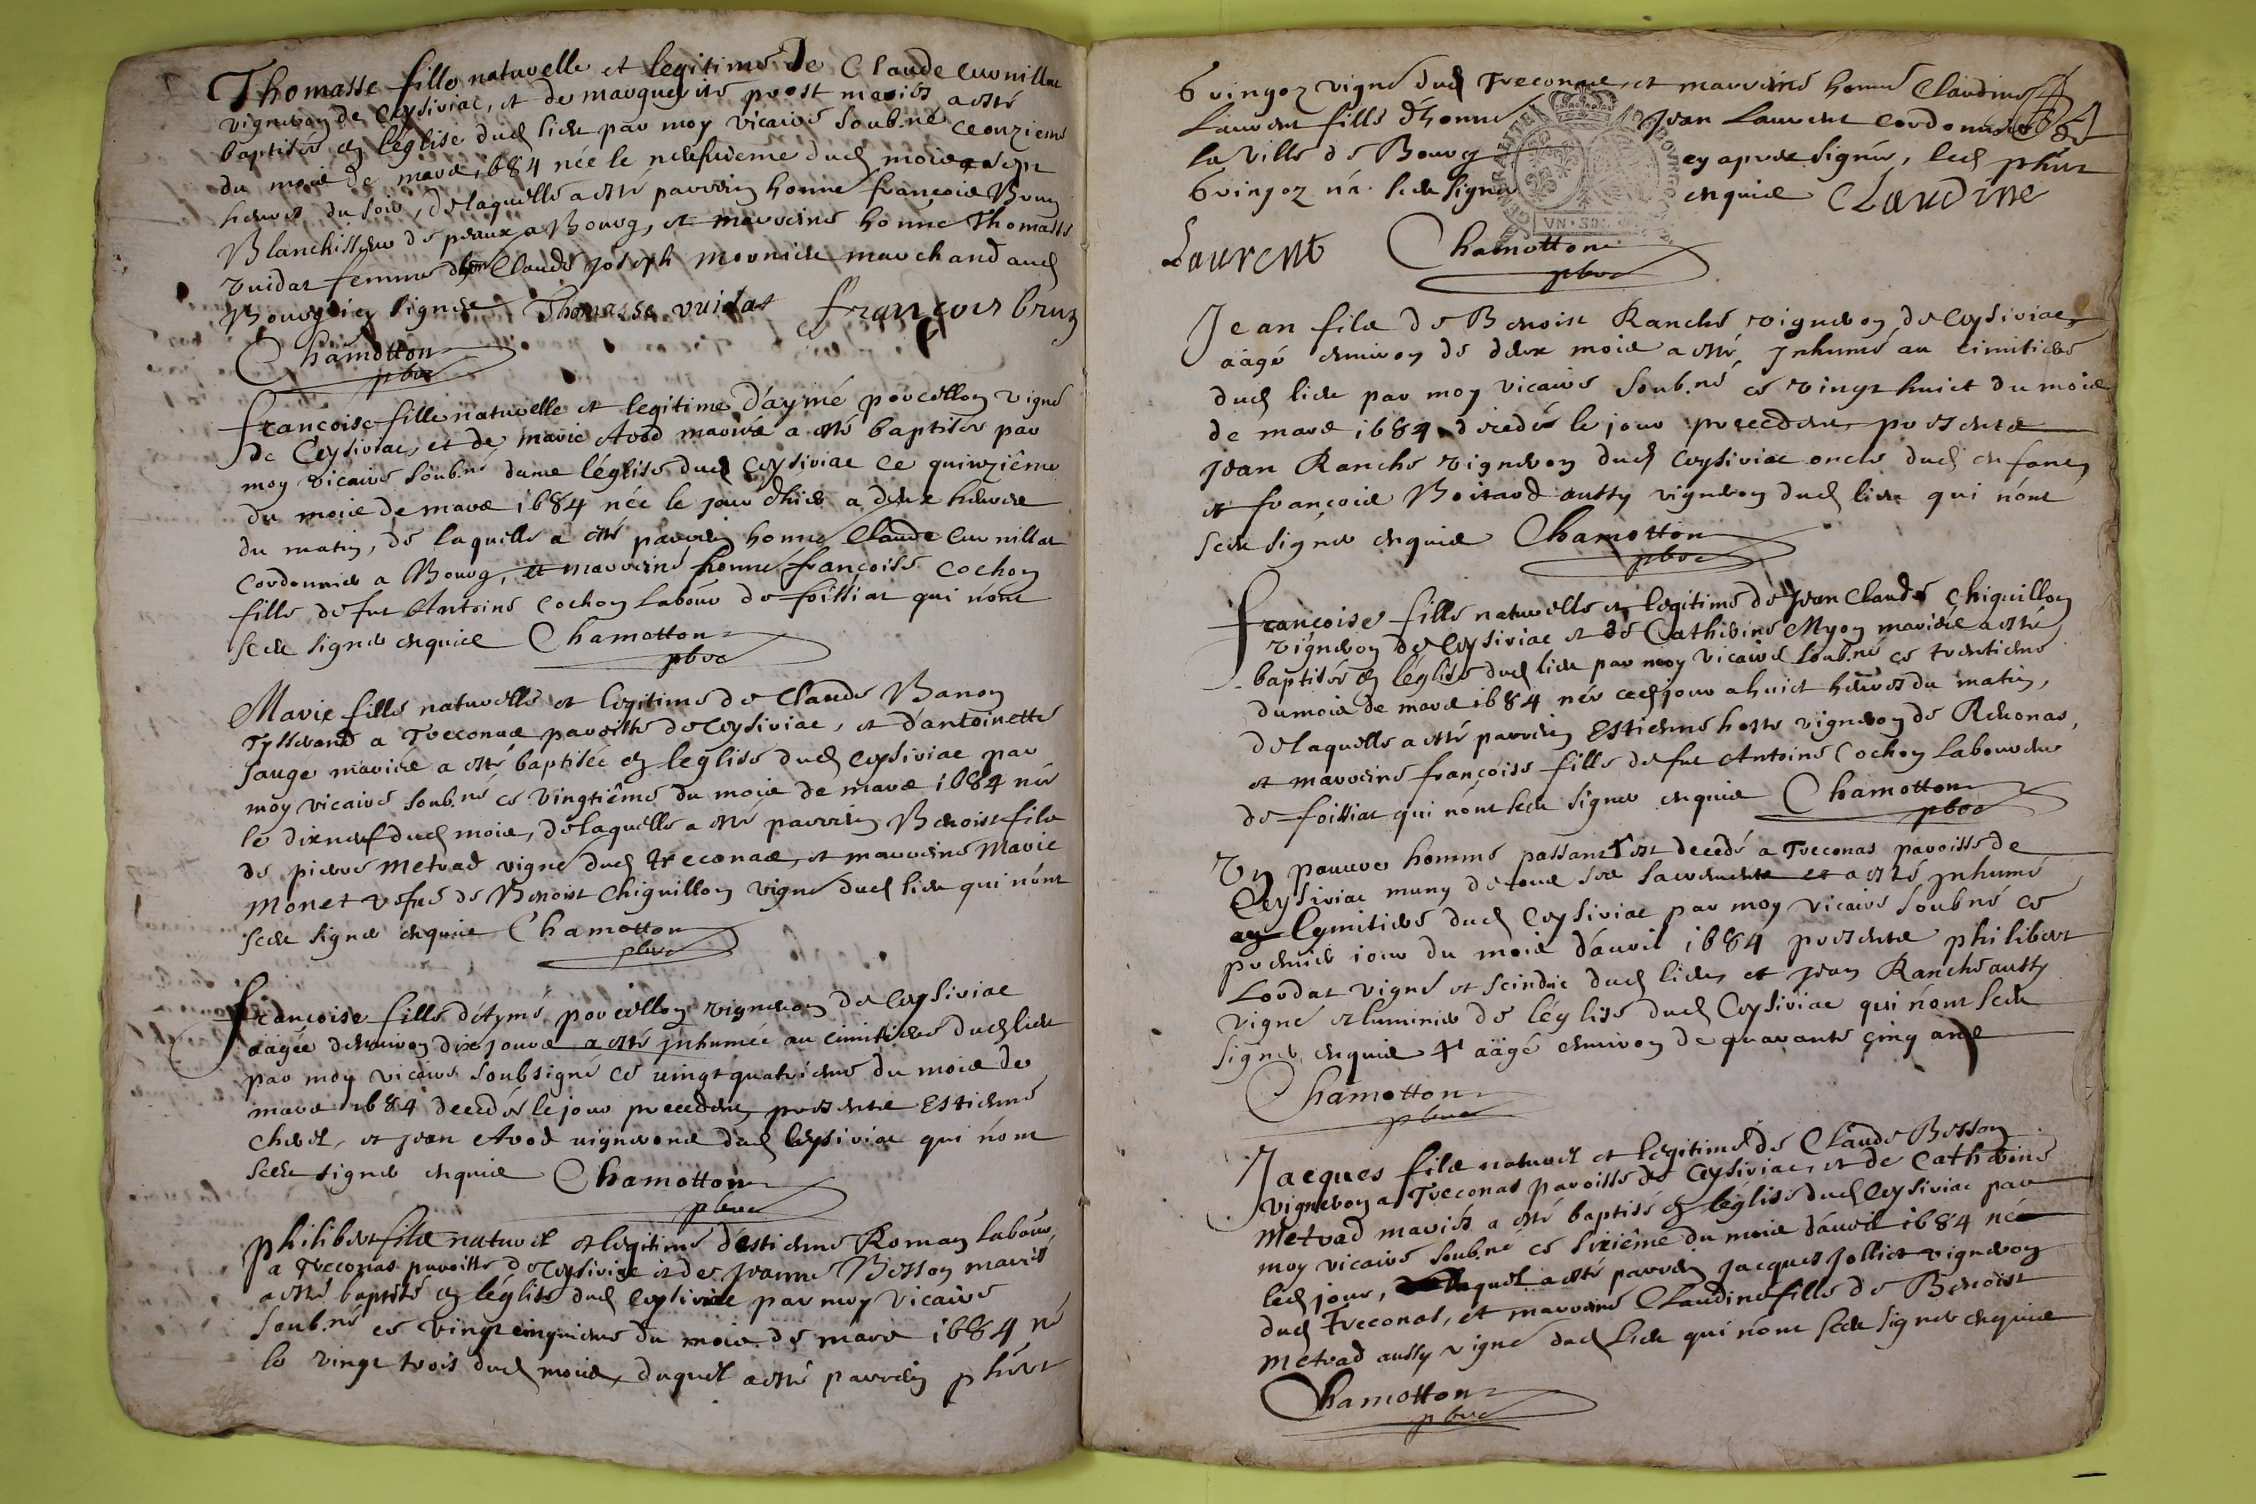 Thomasse fille naturelle et legitime de Claude Curnillat
vigneron de Ceysiriac, et de marguerite prost mariés a esté
baptisée en léglise dud lieu par moy vicaire soub.né ce onzieme
du mois de mars 1684 née le neufvieme dud mois a sept
heures du soir, de laquelle a esté parrein honne françois Brun
Blanchisseur de peaux a Bourg, et marreine honne Thomasse
vuidat femme d'hon Claude Joseph mornieu marchand aud
Bourg icy signés Thomasse vuidat françois brun
Chamotton
pbre
françoise fille naturelle et legitime d'aymé porcellon vigne
de Ceysiriac, et de marie Avod mariés a esté baptisée par
moy vicaire soub.né dans léglise dud Ceysiriac ce quinziême
du mois de mars 1684 née le jour d'hier a deux heures
du matin, de laquelle a esté parrein honne Claude Curnillat
Cordonnier a Bourg, et marreine honne françoise Cochon
fille de fut Antoine Cochon labour de foissiat qui nónt
sceu signer enquis Chamotton
pbre
Marie fille naturelle et legitime de Claude Banon
Tysserand a Treconas paroisse de Ceysiriac, et d'antoinette
Jauge mariés a esté baptisée en leglise dud Ceysiriac par
moy vicaire soub.né ce vingtiême du mois de mars 1684 née
le dixneuf dud mois, de laquelle a esté parrein Benoist fils
de pierre metrad vigne dud treconas, et marreine Marie
Monet vefve de Benoist Chiquillon vigne dud lieu qui nónt
sceu signer enquis Chamotton
pbre
françoise fille d'Aymé porcellon vigneron de Ceysiriac
aagée denviron dix jours a esté inhumée au cimitiere dud lieu
par moy vicaire soubsigné ce vingt quatrieme du mois de
mars 1684 decedée le jour precedent, presents Estienne
Chevel, et Jean Avod vignerons dud Ceysiriac qui nónt
sceu signer enquis Chamotton
pbre
philibert fils naturel et legitime d'estienne Roman labour
a Treconas paroisse de Ceysiriac et de Jeanne Besson mariés
a esté baptisé en léglise dud Ceysiriac par moy vicaire
soub.né ce vingt cinquieme du mois de mars 1684 né
le vingt trois dud mois, duquel a esté parrein phibert
Gringoz vigne dud Treconas, et marreine honne Claudine
Laurent fille d'honne Jean Laurent Cordonnier de
la ville de Bourg cy apres signée, led phibert
Gringoz n'a sceu signer enquis Claudine
Laurent Chamotton
pbre
Jean fils de Benoist Ranche vigneron de Ceysiriac
aägé environ de deux mois a esté inhumé au cimitiere
dud lieu par moy vicaire soub.né ce vingt huict du mois
de mars 1684 decedé le jour precedent presents
Jean Ranche vigneron dud Ceysiriac oncle dud enfant,
et françois Boitard aussy vigneron dud lieu qui nónt
sceu signer enquis Chamotton
pbre
françoise fille naturelle et legitime de Jean Claude Chiquillon
vigneron de Ceysiriac et de Catherine Myon mariés a esté
baptisée en léglise dud lieu par moy vicaire soub.né ce trentieme
du mois de mars 1684 née ced jour a huict heures du matin,
de laquelle a esté parrein Estienne hoste vigneron de Revonas,
et marreine françoise fille de fut Antoine Cochon laboureur
de foissiat qui nónt sceu signer enquis Chamotton
pbre
Un pauvre homme passant est decedé a Treconas paroisse de
Ceysiriac muny de tous ses sacrements et a esté inhumé
au Cymitiere dud Ceysiriac par moy vicaire soub.né ce
premier iour du mois d'avril 1684 presents philibert
Lordat vigne et scindic dud lieu, et Jean Ranche aussy
vigne et luminier de léglise dud Ceysiriac qui nónt sceu
signer enquis aägé environ de quarante cinq ans
Chamotton
pbre
Jacques fils naturel et legitime de Claude Besson
vigneron a Treconas paroisse de Ceysiriac, et de Catherine
Metrad mariés a esté baptisé en léglise dud Ceysiriac par
moy vicaire soub.né ce sixiême du mois d'avril 1684 né
led jour, duquel a esté parrein Jacques Jolliet vigneron
dud treconas, et marreine Claudine fille de Benoist
Metrad aussy vigne dud lieu qui nónt sceu signer enquis
Chamotton
pbre